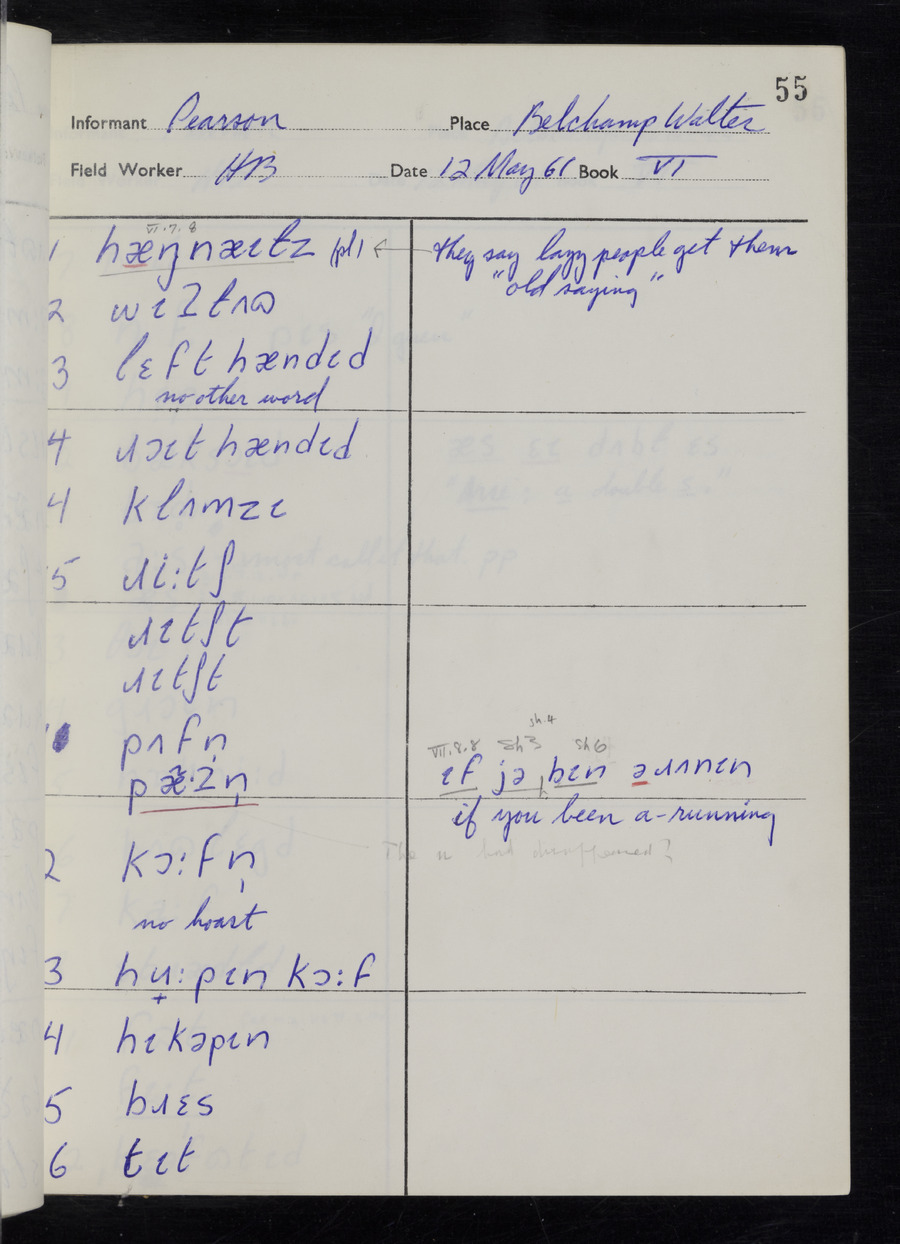 55
Informant Pearson Place Belchamp Walter
Field Worker HB Date 12 May 61 Book VI
VI.7.8
1 hæŋnæɪtz (pl) ← they say lazy people get them
"old saying"
2
3 lɛft hændɪd
no other word
4 ɹɔɪt hændɪd
4 klʌmzɪ
5 ɹi:tʃ
ɹɪtʃt
ɹɪtʃt
pʌfn̩
sh.4
VII.8.8 Sh3 Sh6
ɪf jə bɪn əɹʌnɪn
if you been a-running
2 kɔ:fn̩
no hoast
3 hʉ:pɪn kɔ:f
4 hɪkəpɪn
5 bɹɛs
6 tɪt